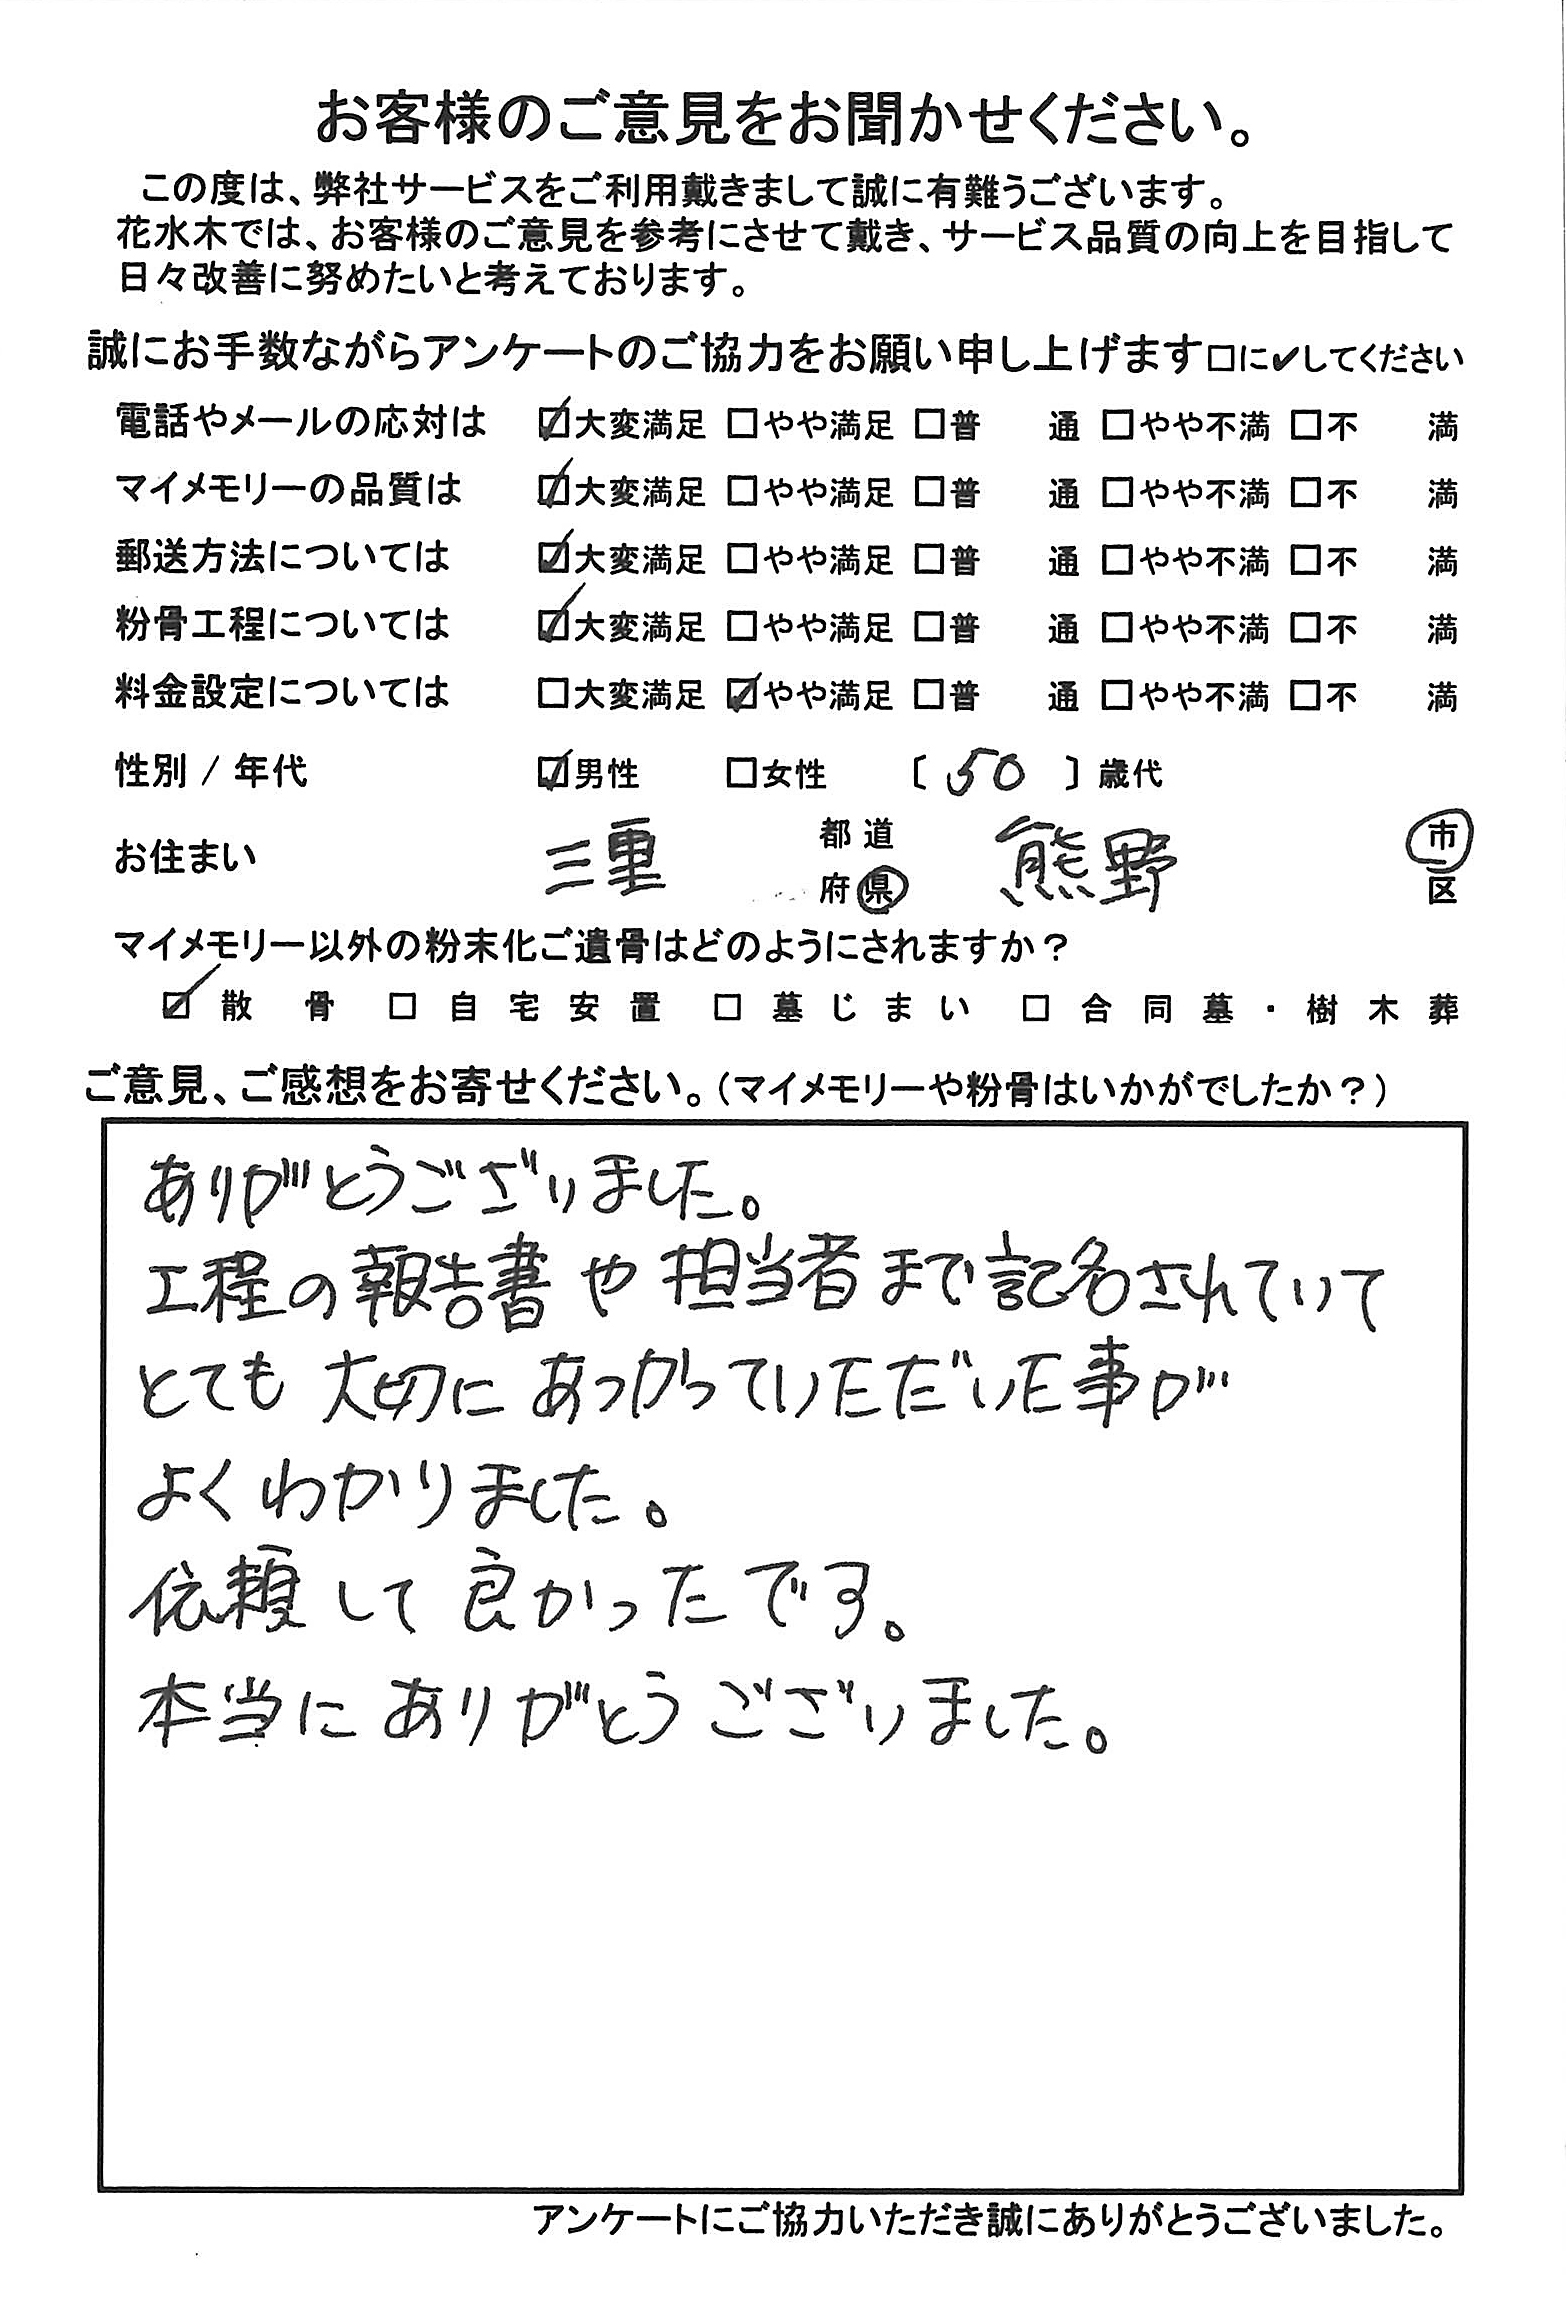 お客様のご意見をお聞かせください。
この度は、弊社サービスをご利用戴きまして誠に有難うございます。
花水木では、お客様のご意見を参考にさせて戴き、サービス品質の向上を目指して
日々改善に努めたいと考えております。
誠にお手数ながらアンケートのご協力をお願い申し上げます□に✔してください
電話やメールの応対は ☑大変満足 □やや満足 □普 通 □やや不満 □不 満
マイメモリーの品質は ☑大変満足 □やや満足 □普 通 □やや不満 □不 満
郵送方法については ☑大変満足 □やや満足 □普 通 □やや不満 □不 満
粉骨工程については ☑大変満足 □やや満足 □普 通 □やや不満 □不 満
料金設定については □大変満足 ☑やや満足 □普 通 □やや不満 □不 満
性別 / 年代 ☑男性 □女性 〔 50 〕歳代
お住まい 三重 都道府県 熊野 市区
マイメモリー以外の粉末化ご遺骨はどのようにされますか？
☑ 散骨 □ 自宅安置 □ 墓じまい □ 合同墓・樹木葬
ご意見、ご感想をお寄せください。(マイメモリーや粉骨はいかがでしたか？)
ありがとうございました。
工程の報告書や担当者まで記名されていて
とても大切にあつかっていただいた事が
よくわかりました。
依頼して良かったです。
本当にありがとうございました。
アンケートにご協力いただき誠にありがとうございました。